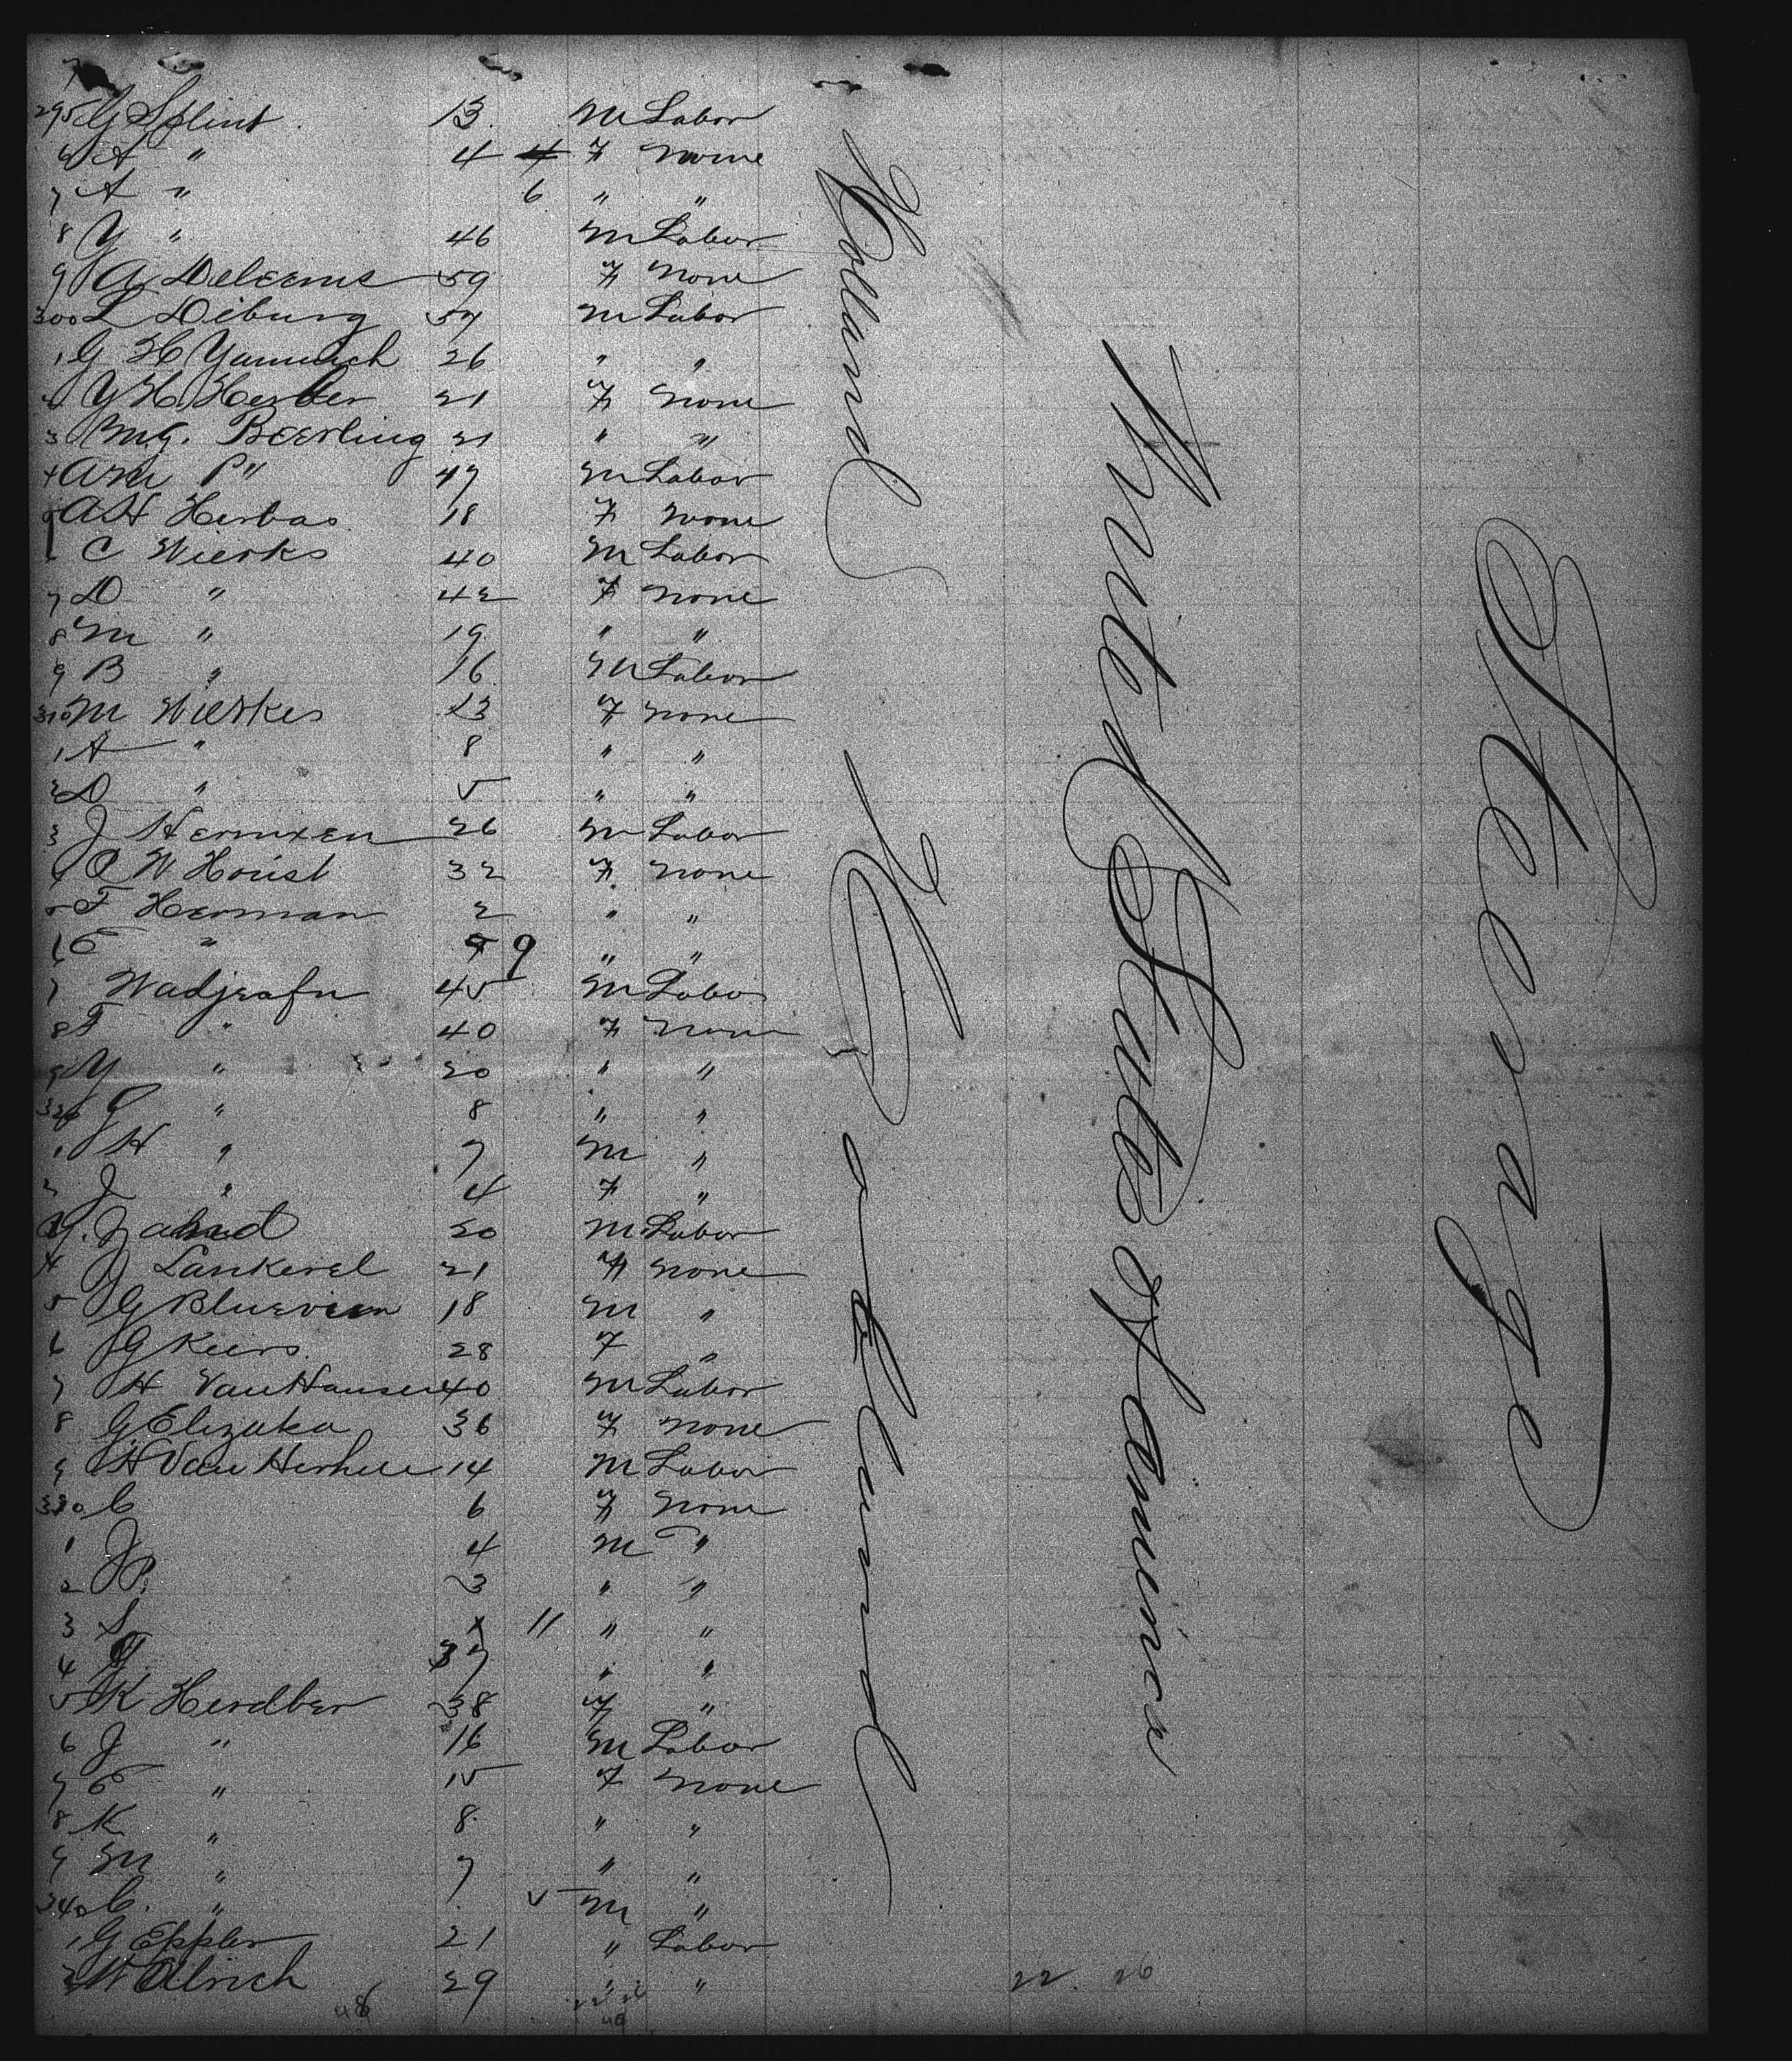 7
295 G Splint 13 M Labor
6 A " 4 4 F None
7 A " 6 " "
8 Y " 46 M Labor
9 A Deleems 59 F None
300 L Diburg 57 M Labor
1 G H 26 " "
Y H Herber 21 F None
3 Mg. Beerling 21 " "
4 AM P " 47 M Labor
A H Herbas 18 F None
C Wierks 40 M Labor
7 D " 42 F None
8 M " 19 " "
9 B " 16 M Labor
310 M Wierkes 13 F None
1 A " 8 " "
2 D " 5 " "
3 J Hermxen 26 M Labor
4 C W Houst 32 F None
5 F Herman 2 " "
6 E " 9 " "
7 Wadjeafn 45 M Labor
8 F " 40 F None
9 Y " 20 " "
320 G " 8 " "
1 H " 7 M "
2 J " 4 F "
20 M Labor
4 J Lankerel 21 F None
5 G 18 M "
6 G Kiers 28 F "
7 H Van Hausen 40 M Labor
8 G Elizaka 36 F None
9 H Van 14 M Labor
330 C 6 F None
1 J 4 M "
2 P. 3 " "
3 S 11 " "
4 37 " "
5 K Herdber 38 F "
6 J " 16 M Labor
7 E " 15 F None
8 K " 8 " "
9 M " 7 " "
340 C. " 5 M "
1 G Eppler 21 " Labor
2 W Olrich 29 " "
48
22 26
Holland
Holland
United States of America
Steerage